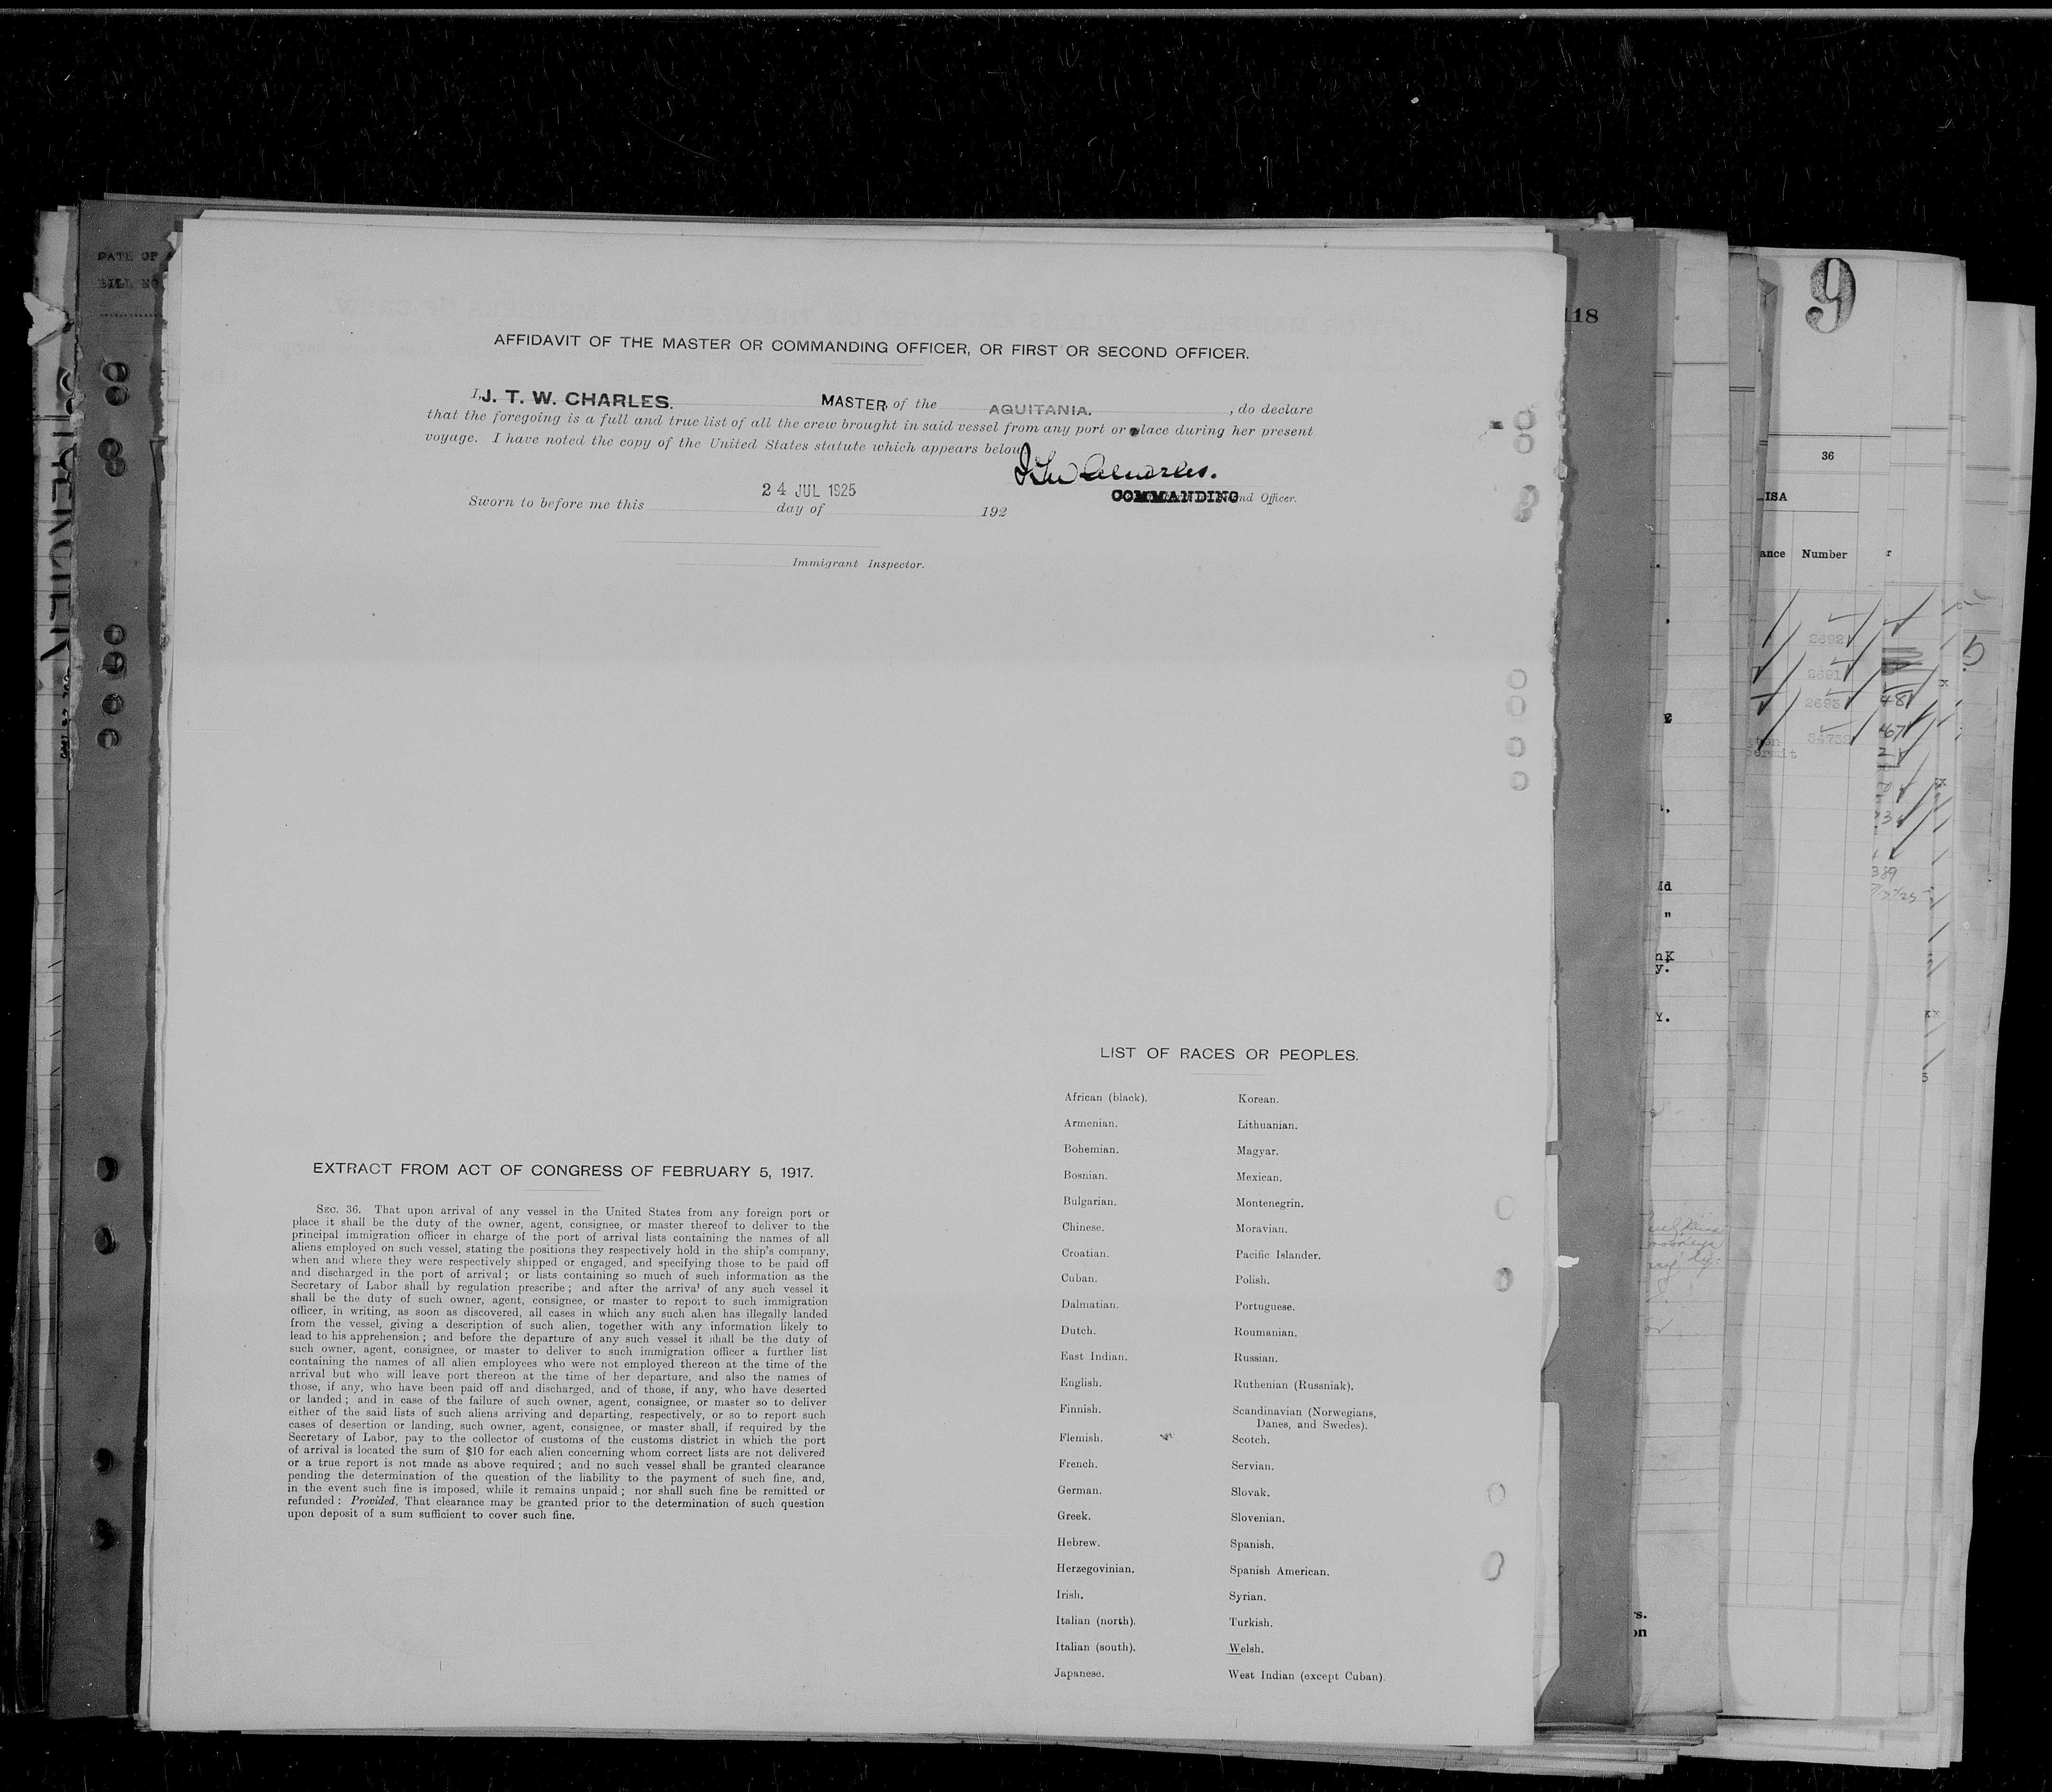 DATE OF
BILL NO
118
9
36
ISA
ance Number
2692
2691
2693
54732
ermit
48
67
389
AFFIDAVIT OF THE MASTER OR COMMANDING OFFICER, OR FIRST OR SECOND OFFICER.
I, J. T. W. CHARLES. MASTER, of the AQUITANIA. , do declare
that the foregoing is a full and true list of all the crew brought in said vessel from any port or place during her present
voyage. I have noted the copy of the United States statute which appears below.
J T W Charles.
COMMANDING nd Officer.
24 JUL 1925
Sworn to before me this day of 192
Immigrant Inspector.
EXTRACT FROM ACT OF CONGRESS OF FEBRUARY 5, 1917.
SEC. 36. That upon arrival of any vessel in the United States from any foreign port or
place it shall be the duty of the owner, agent, consignee, or master thereof to deliver to the
principal immigration officer in charge of the port of arrival lists containing the names of all
aliens employed on such vessel, stating the positions they respectively hold in the ship's company,
when and where they were respectively shipped or engaged, and specifying those to be paid off
and discharged in the port of arrival; or lists containing so much of such information as the
Secretary of Labor shall by regulation prescribe; and after the arrival of any such vessel it
shall be the duty of such owner, agent, consignee, or master to report to such immigration
officer, in writing, as soon as discovered, all cases in which any such alien has illegally landed
from the vessel, giving a description of such alien, together with any information likely to
lead to his apprehension; and before the departure of any such vessel it shall be the duty of
such owner, agent, consignee, or master to deliver to such immigration officer a further list
containing the names of all alien employees who were not employed thereon at the time of the
arrival but who will leave port thereon at the time of her departure, and also the names of
those, if any, who have been paid off and discharged, and of those, if any, who have deserted
or landed; and in case of the failure of such owner, agent, consignee, or master so to deliver
either of the said lists of such aliens arriving and departing, respectively, or so to report such
cases of desertion or landing, such owner, agent, consignee, or master shall, if required by the
Secretary of Labor, pay to the collector of customs of the customs district in which the port
of arrival is located the sum of $10 for each alien concerning whom correct lists are not delivered
or a true report is not made as above required; and no such vessel shall be granted clearance
pending the determination of the question of the liability to the payment of such fine, and,
in the event such fine is imposed, while it remains unpaid; nor shall such fine be remitted or
refunded: Provided, That clearance may be granted prior to the determination of such question
upon deposit of a sum sufficient to cover such fine.
LIST OF RACES OR PEOPLES.
African (black).
Armenian.
Bohemian.
Bosnian.
Bulgarian.
Chinese.
Croatian.
Cuban.
Dalmatian.
Dutch.
East Indian.
English.
Finnish.
Flemish.
French.
German.
Greek.
Hebrew.
Herzegovinian.
Irish.
Italian (north).
Italian (south).
Japanese.
Korean.
Lithuanian.
Magyar.
Mexican.
Montenegrin.
Moravian.
Pacific Islander.
Polish.
Portuguese.
Roumanian.
Russian.
Ruthenian (Russniak).
Scandinavian (Norwegians,
Danes, and Swedes).
Scotch.
Servian.
Slovak.
Slovenian.
Spanish.
Spanish American.
Syrian.
Turkish.
Welsh.
West Indian (except Cuban).